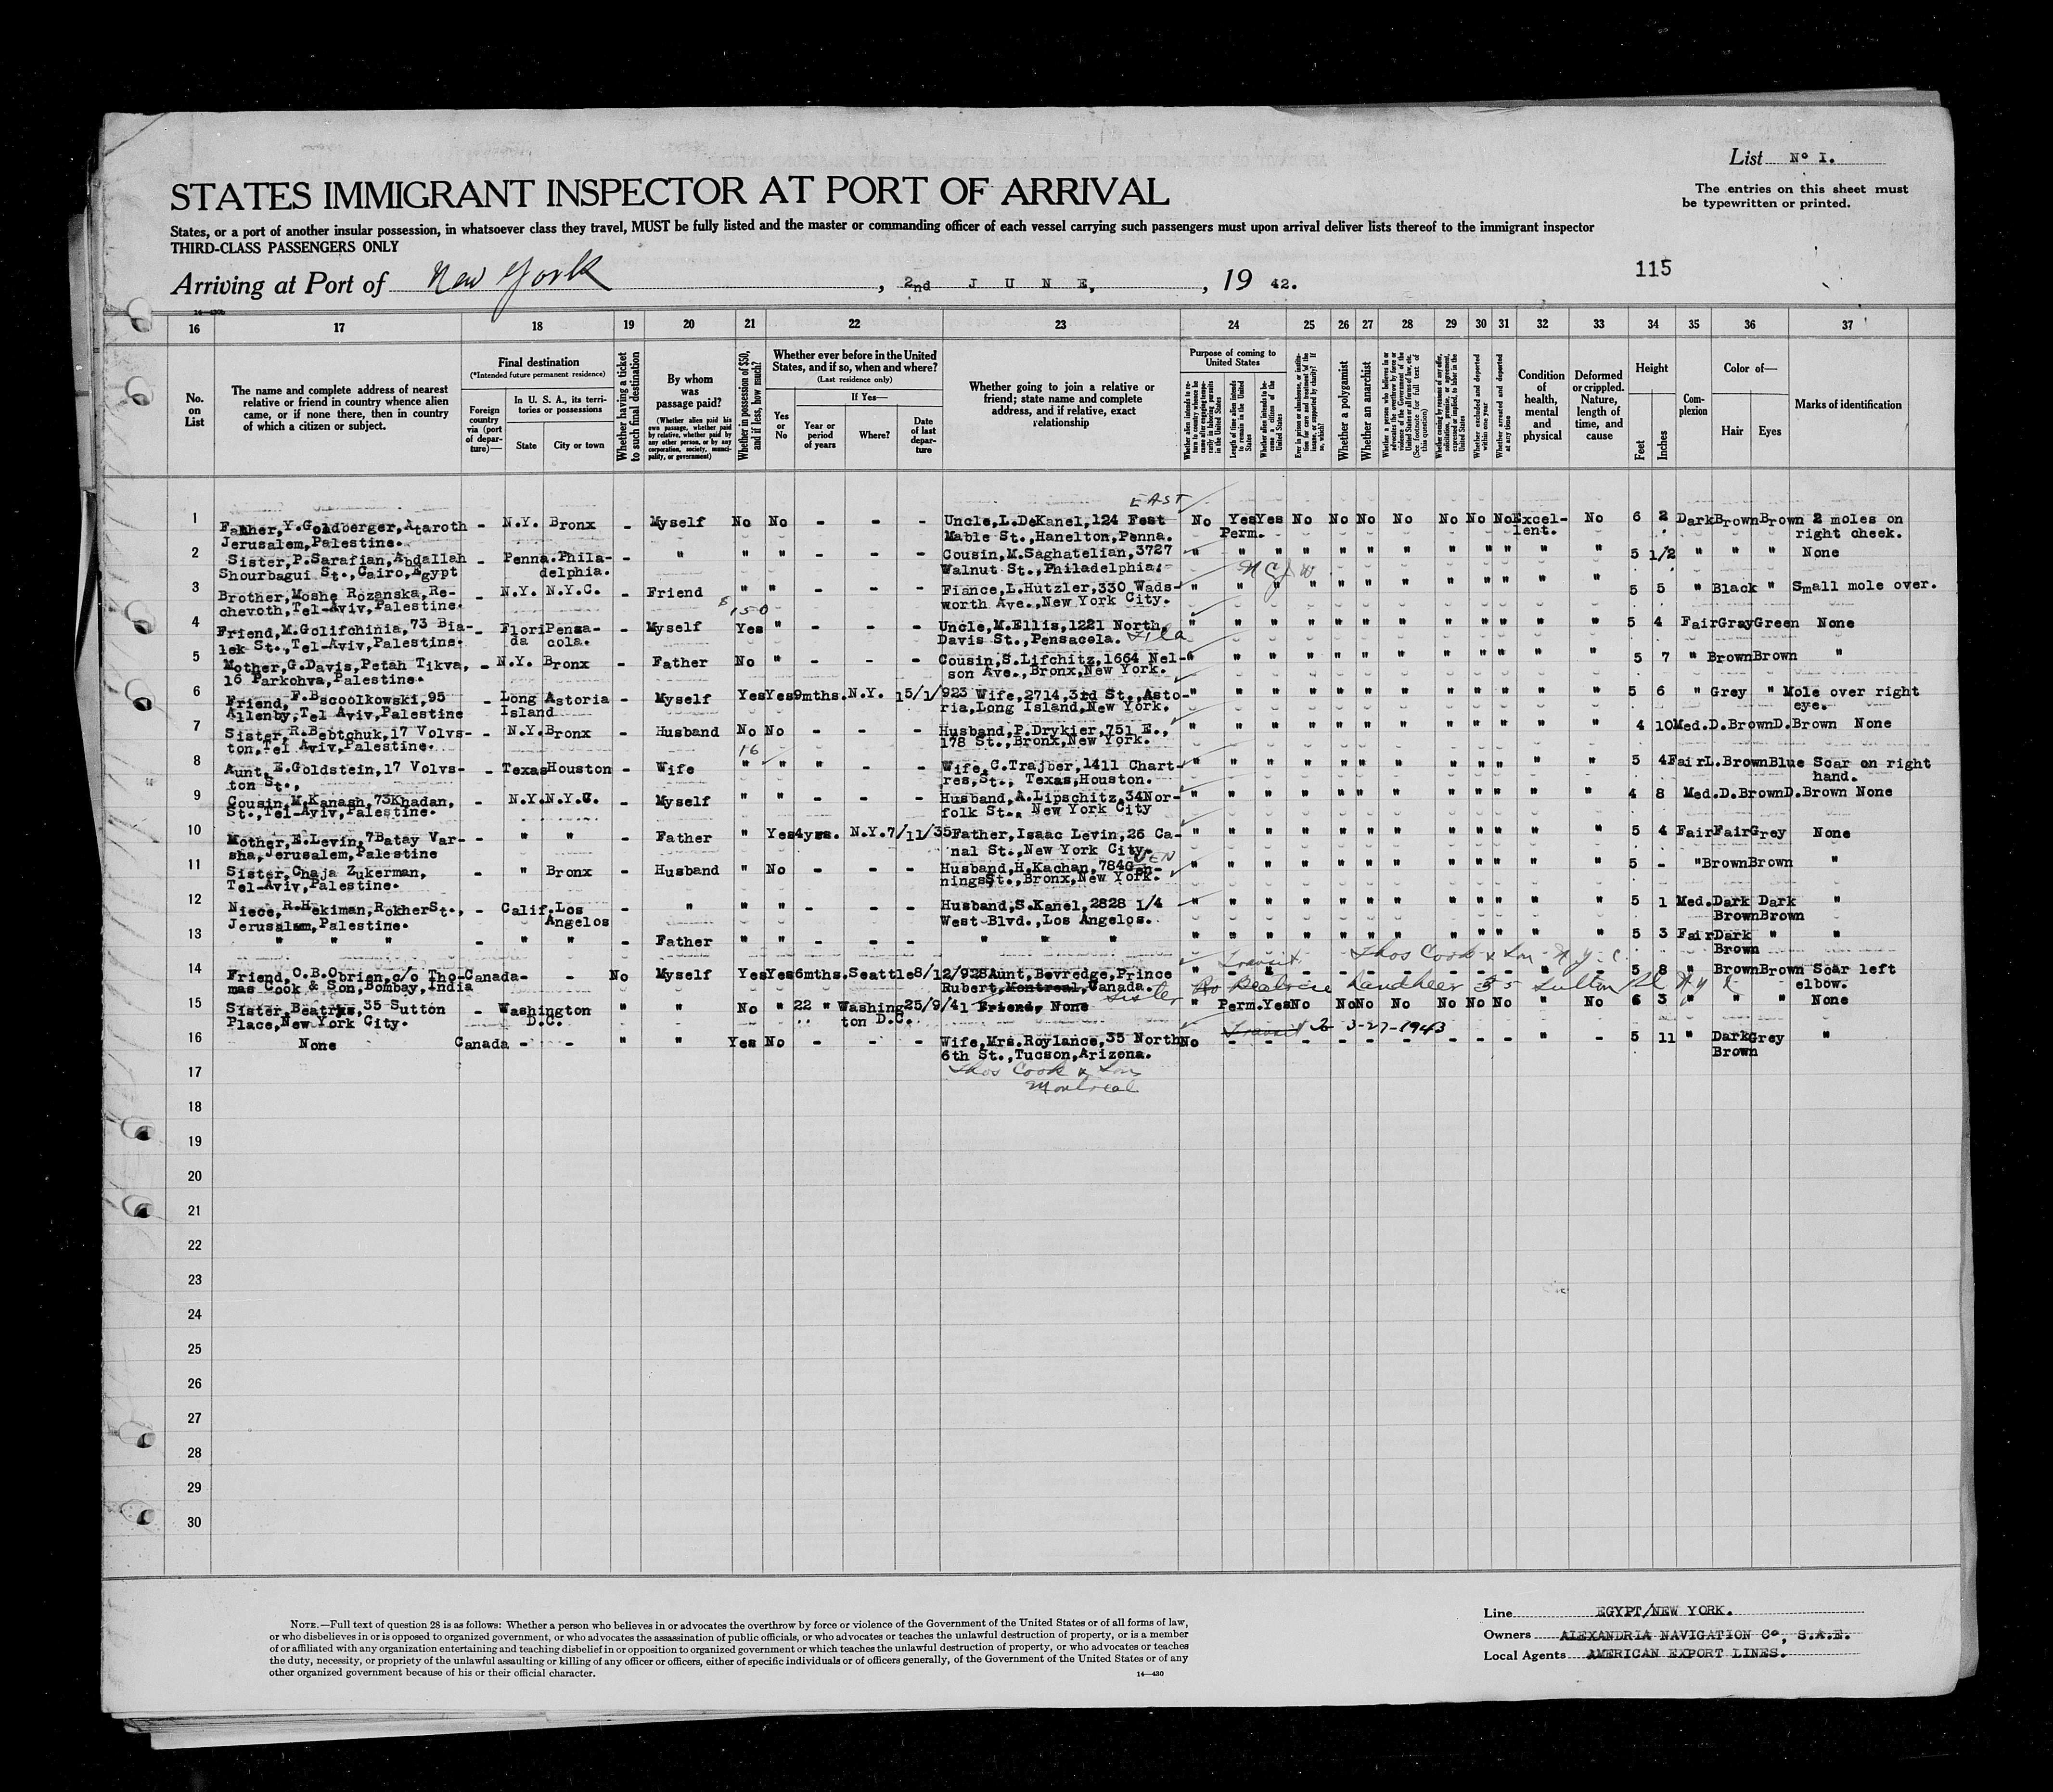 List No I.
STATES IMMIGRANT INSPECTOR AT PORT OF ARRIVAL
The entries on this sheet must
be typewritten or printed.
States, or a port of another insular possession, in whatsoever class they travel, MUST be fully listed and the master or commanding officer of each vessel carrying such passengers must upon arrival deliver lists thereof to the immigrant inspector
THIRD-CLASS PASSENGERS ONLY
115
Arriving at Port of New York, 2nd JUNE, , 19 42.
16 17 18 19 20 21 22 23 24 25 26 27 28 29 30 31 32 33 34 35 36 37
No. on List
The name and complete address of nearest relative or friend in country whence alien came, or if none there, then in country of which a citizen or subject.
Final destination
(*Intended future permanent residence)
Foreign country via (port of departure)—
In U. S. A., its territories or possessions
State
City or town
Whether having a ticket to such final destination
By whom was passage paid?
(Whether alien paid his own passage, whether paid by relative, whether paid by any other person, or by any corporation, society, municipality, or government)
Whether in possession of $50, and if less, how much?
Whether ever before in the United States, and if so, when and where?
(Last residence only)
Yes or No
If Yes—
Year or period of years
Where?
Date of last departure
Whether going to join a relative or friend; state name and complete address, and if relative, exact relationship
Purpose of coming to United States
Length of time alien intends to remain in the United States
Whether alien intends to become a citizen of the United States
Whether a polygamist
Whether an anarchist
Whether excluded and deported within one year
Whether arrested and deported at any time
Condition of health, mental and physical
Deformed or crippled. Nature, length of time, and cause
Height
Feet
Inches
Complexion
Color of—
Hair
Eyes
Marks of identification
EAST
1 Father,Y.Goldberger,Ataroth - N.Y. Bronx - Myself No No - - - Uncle,L.DeKanel,124 Fest No Yes Yes No No No No No No No Excel- No 6 2 Dark Brown Brown 2 moles on
Jerusalem,Palestine. Mable St.,Hanelton,Penna. Perm. lent. right cheek.
2 Sister,P.Sarafian,Abdallah - Penna. Phila- - " " " - - - Cousin,M.Saghatelian,3727 " " " " " " " " " " " " 5 1/2 " " " None
Shourbagui St.,Cairo,Egypt delphia. Walnut St.,Philadelphia.
3 Brother,Moshe Rozanska,Re- - N.Y. N.Y.C. - Friend " " - - - Fiance,L.Hutzler,330 Wads- " " " " " " " " " " " " 5 5 " Black " Small mole over.
chevoth,Tel-Aviv,Palestine. worth Ave.,New York City.
150
4 Friend,M.Golifchinia,73 Bia- - Flori Pensa- - Myself Yes " - - - Uncle,M.Ellis,1221 North, " " " " " " " " " " " " 5 4 Fair Gray Green None
lek St.,Tel-Aviv,Palestine. da cola. Davis St.,Pensacola. Fla
5 Mother,G.Davis,Petah Tikva, - N.Y. Bronx - Father No " - - - Cousin,S.Lifchitz,1664 Nel- " " " " " " " " " " " " 5 7 " Brown Brown "
16 Parkohva,Palestine. son Ave.,Bronx,New York.
6 Friend, F.Bscoolkowski,95 - Long Astoria - Myself Yes Yes 9mths. N.Y. 15/1/923 Wife,2714,3rd St.,Asto- " " " " " " " " " " " " 5 6 " Grey " Mole over right
Allenby,Tel Aviv,Palestine Island ria,Long Island,New York. eye.
7 Sister,R.Bebtchuk,17 Volvs- - N.Y. Bronx - Husband No No - - - Husband,P.Drykier,751 E., " " " " " " " " " " " " 4 10 Med. D.Brown D.Brown None
ton,Tel Aviv,Palestine. 178 St.,Bronx,New York.
16
8 Aunt,E.Goldstein,17 Volvs- - Texas Houston - Wife " " " - - Wife,C.Trajber,1411 Chart- " " " " " " " " " " " " 5 4 Fair L.Brown Blue Scar on right
ton St., res,St., Texas,Houston. hand.
9 Cousin,M.Kanash,73Khadan, - N.Y. N.Y.C. - Myself " " - - - Husband,A.Lipschitz,34Nor- " " " " " " " " " " " " 4 8 Med. D.Brown D.Brown None
St.,Tel-Aviv,Palestine. folk St., New York City
10 Mother,E.Levin,7Batay Var- - " " - Father " Yes 4yrs. N.Y. 7/11/35 Father,Isaac Levin,26 Ca- " " " " " " " " " " " " 5 4 Fair Fair Grey None
sha,Jerusalem,Palestine nal St.,New York City.
11 Sister,Chaja Zukerman, - " Bronx - Husband " No - - - Husband,H.Kachan,784Gen- " " " " " " " " " " " " 5 - " Brown Brown "
Tel-Aviv,Palestine. ningsSt.,Bronx,New York.
12 Niece,R.Hekiman,RokherSt., - Calif. Los - " " " - - - Husband,S.Kanel,2828 1/4 " " " " " " " " " " " " 5 1 Med. Dark Dark "
Jerusalem,Palestine. Angelos West Blvd.,Los Angelos. Brown Brown
13 " " " - " " - Father " " - - - " " " " " " " " " " " " " " " 5 3 Fair Dark " "
Brown
Transit Thos Cook & Son - N.Y.C.
14 Friend,C.B.Obrien,c/o Tho- Canada - - No Myself Yes Yes 6mths. Seattle 8/12/928 Aunt,Bevredge,Prince " - " - - - - - - - " - 5 8 " Brown Brown Scar left
mas Cook & Son,Bombay,India Rubert,Montreal,Canada. elbow.
Sister Beatrice 35 Sutton Pl N.Y.
15 Sister,Beatrys,35 Sutton - Washington " " No " 22 " Washing- 25/9/41 Friend, None " Perm. Yes No No No No No No No " No 6 3 " " " None
Place,New York City. D.C. ton D.C.
Transit 3-27-1943
16 None Canada - - " " Yes No - - - Wife,Mrs.Roylance,35 North No - - - - - - - - - " - 5 11 " Dark Grey "
6th St.,Tucson,Arizona. Brown
17 Thos Cook & Son
Montreal
18
19
20
21
22
23
24
25
26
27
28
29
30
NOTE.—Full text of question 28 is as follows: Whether a person who believes in or advocates the overthrow by force or violence of the Government of the United States or of all forms of law,
or who disbelieves in or is opposed to organized government, or who advocates the assassination of public officials, or who advocates or teaches the unlawful destruction of property, or is a member
of or affiliated with any organization entertaining and teaching disbelief in or opposition to organized government or which teaches the unlawful destruction of property, or who advocates or teaches
the duty, necessity, or propriety of the unlawful assaulting or killing of any officer or officers, either of specific individuals or of officers generally, of the Government of the United States or of any
other organized government because of his or their official character.
14—430
Line EGYPT/NEW YORK.
Owners ALEXANDRIA NAVIGATION Co, S.A.E.
Local Agents AMERICAN EXPORT LINES.